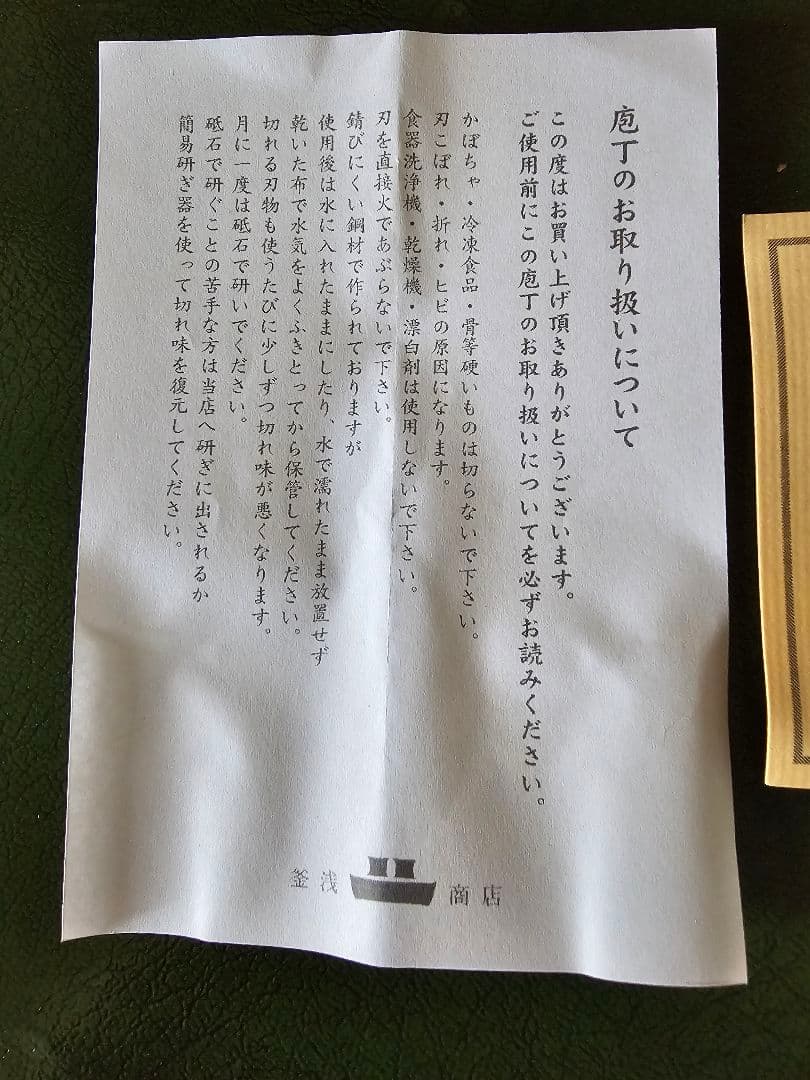 庖丁のお取り扱いについて
この度はお買い上げ頂きありがとうございます。
ご使用前にこの庖丁のお取り扱いについてを必ずお読みください。
かぼちゃ・冷凍食品・骨等硬いものは切らないで下さい。
刃こぼれ・折れ・ヒビの原因になります。
食器洗浄機・乾燥機・漂白剤は使用しないで下さい。
刃を直接火であぶらないで下さい。
錆びにくい鋼材で作られておりますが
使用後は水に入れたままにしたり、水で濡れたまま放置せず
乾いた布で水気をよくふきとってから保管してください。
切れる刃物も使うたびに少しずつ切れ味が悪くなります。
月に一度は砥石で研いでください。
砥石で研ぐことの苦手な方は当店へ研ぎに出されるか
簡易研ぎ器を使って切れ味を復元してください。
釜浅商店